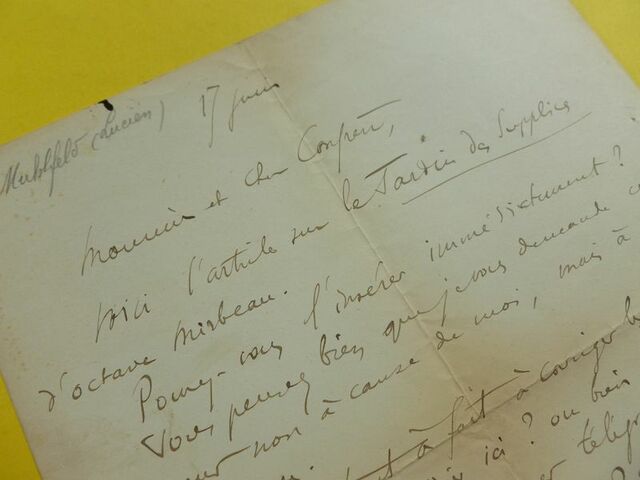 Muhlfeld (Lucien)
17 juin
Monsieur et cher Confrère,
Voici l'article sur le Jardin des Supplices
d'Octave Mirbeau.
Pouvez-vous l'insérer immédiatement?
Vous pensez bien que je vous demande ce
non à cause de moi, mais à
à fait à corriger
ici? ou bien